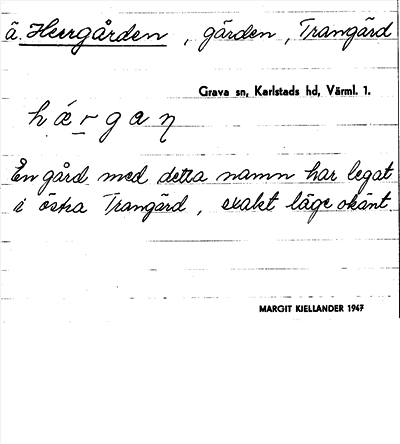 ä. Herrgården, gården, Trangärd
Grava sn, Karlstads hd, Värml. 1.
hǽrgaη
En gård med detta namn har legat
i östra Trangärd, exakt läge okänt.
MARGIT KJELLANDER 1947